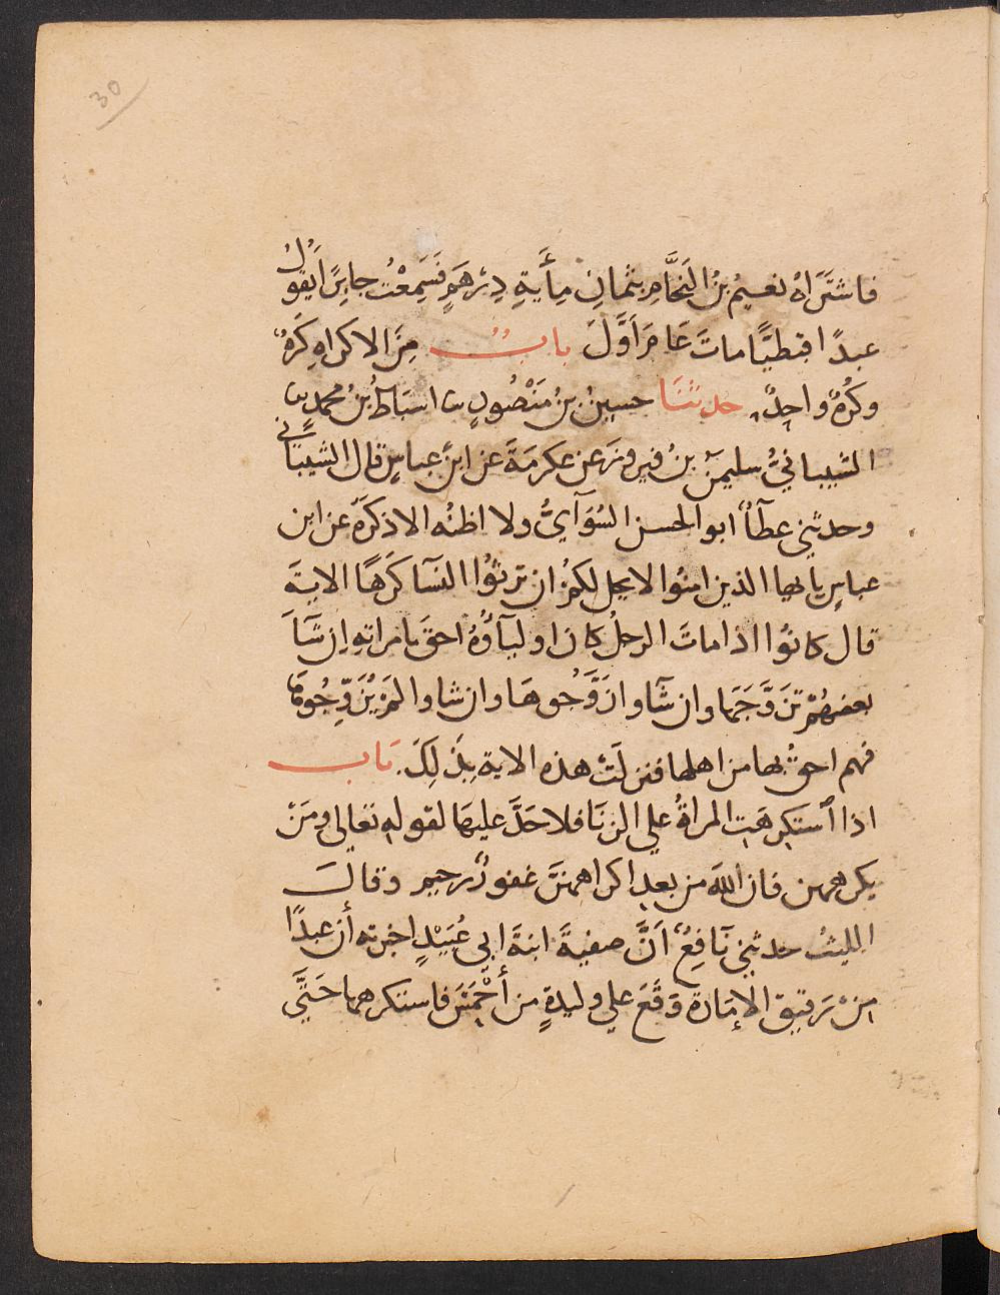 30
فاشتَرَاهُ نعيمُ بنُ النَحَّامِ بثمانِ مِأَيةِ دِرْهَمٍ فَسَمِعْتُ جابِرًا يَقُولُ
عبدًا قبطيًّا ماتَ عَامَ أوَّلَ بابٌ مِنَ الاكراهِ كَرْهٌ
وكُرْهٌ واحِدٌ حدثنَا حسينُ بنُ مَنْصُورٍ ثنا اسباطُ بنُ محمدٍ ثنا
الشيبانيُّ سليمنُ بنُ فيروزَ عن عكرمَةَ عن ابن عباسٍ قال الشيبانى
وحدثني عطآٌ ابو الحسن السُوَآيُّ ولا اظنُه الا ذكرَهُ عن ابن
عباسٍ يا يها الذين امنُوا لا يحل لكمُ ان ترثوُا النسَآ كَرهًا الايةَ
قال كانوُا اذا ماتَ الرجلُ كان اوليآؤُهُ احقَ بامراتهِ ان شآَ
بعضهُمْ تزَوَّجَهَا وان شآوا زَوَّجُوهَا وان شاوا لمْ يُزَوِّجُوهَا
فهم احقُ بها من اهلها فنزلَتْ هذه الاية بِذَلِكَ. بَاب
اذا ٱستكرهَتِ المراةُ علي الزنَا فلا حَدَّ عليهَا لقولهِ تعالى ومَنْ
يكرههن فان اللهَ من بعدِ اكراههنَّ غفورٌ رحيم وقالَ
الليثُ حدثني نَافِعٌ أنَّ صفيةَ ابنةَ ابى عُبَيْدٍ اخبرته أن عبدًا
مِنْ رَقيقِ الإمَارَةِ وَقَعَ علي وليدةٍ من أخْمَسَ فاستكرهها حَتَّي